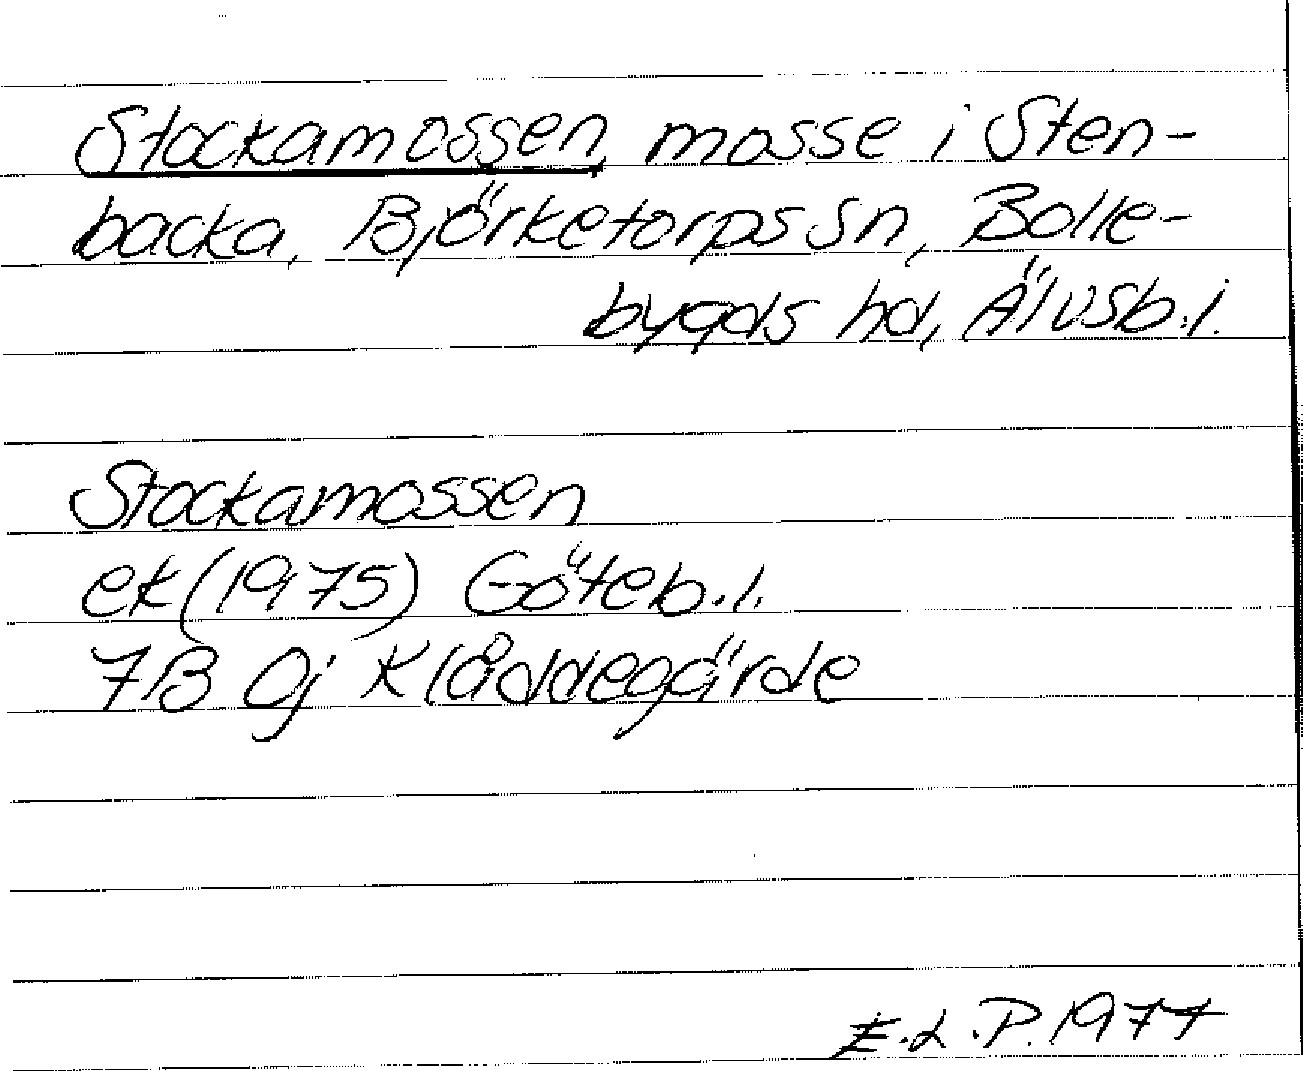 Stockamossen, mosse i Sten-
backa, Björketorps sn, Bolle-
bygds hd, Älvsb. l.
Stockamossen
ek (1975) Göteb. l.
7B 0j Klåddegärde
E. L. P. 1977